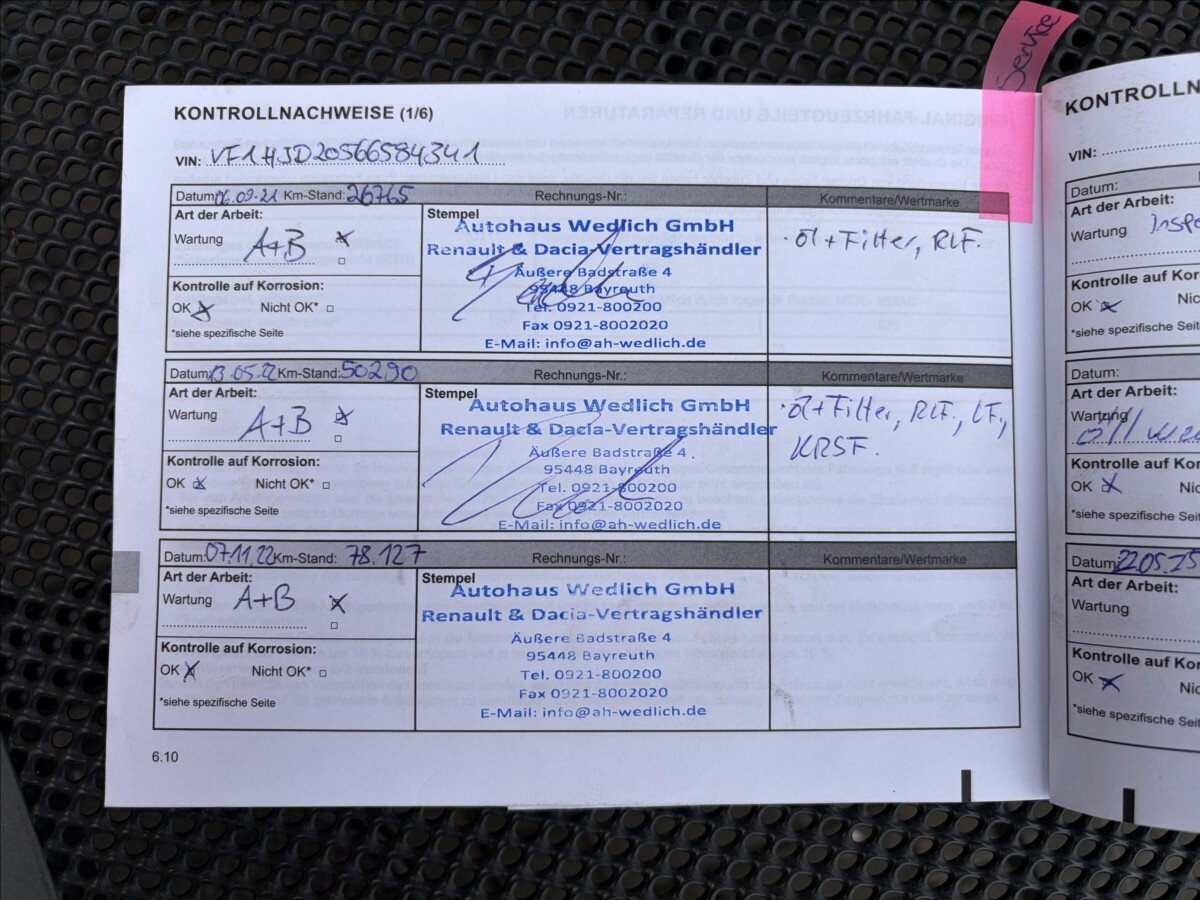 Service
KONTROLLNACHWEISE (1/6)
VIN: VF1HJD20566584341
Datum: 06.09.21 Km-Stand: 26765 Rechnungs-Nr.: Kommentare/Wertmarke
Art der Arbeit:
Wartung A+B
Kontrolle auf Korrosion:
OK Nicht OK*
*siehe spezifische Seite
Stempel
Autohaus Wedlich GmbH
Renault & Dacia-Vertragshändler
Äußere Badstraße 4
95448 Bayreuth
Tel. 0921-800200
Fax 0921-8002020
E-Mail: info@ah-wedlich.de
Öl+Filter, RLF.
Datum: 13.05.22 Km-Stand: 50290 Rechnungs-Nr.: Kommentare/Wertmarke
Art der Arbeit:
Wartung A+B
Kontrolle auf Korrosion:
OK Nicht OK*
*siehe spezifische Seite
Stempel
Autohaus Wedlich GmbH
Renault & Dacia-Vertragshändler
Äußere Badstraße 4
95448 Bayreuth
Tel. 0921-800200
Fax 0921-8002020
E-Mail: info@ah-wedlich.de
Öl+Filter, RLF, LF,
KRSF.
Datum: 07.11.22 Km-Stand: 78.127 Rechnungs-Nr.: Kommentare/Wertmarke
Art der Arbeit:
Wartung A+B
Kontrolle auf Korrosion:
OK Nicht OK*
*siehe spezifische Seite
Stempel
Autohaus Wedlich GmbH
Renault & Dacia-Vertragshändler
Äußere Badstraße 4
95448 Bayreuth
Tel. 0921-800200
Fax 0921-8002020
E-Mail: info@ah-wedlich.de
6.10
KONTROLLN
VIN:
Datum:
Art der Arbeit:
Wartung Inspe
Kontrolle auf Korros
OK Nic
*siehe spezifische Seite
Datum:
Art der Arbeit:
Wartung
Kontrolle auf Korros
OK Nic
*siehe spezifische Seite
Datum: 22.05.25
Art der Arbeit:
Wartung
Kontrolle auf Korros
OK
*siehe spezifische Seite